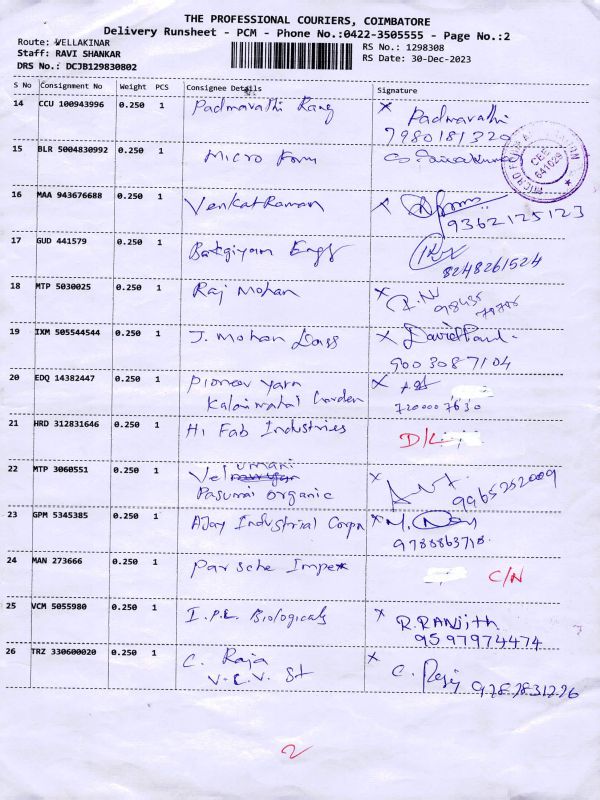 THE PROFESSIONAL COURIERS, COIMBATORE
Delivery Runsheet - PCM - Phone No.:0422-3505555 - Page No.:2
Route: VELLAKINAR
Staff: RAVI SHANKAR
DRS No.: DCJB129830802
RS No.: 1298308
RS Date: 30-Dec-2023
S No Consignment No Weight PCS Consignee Details Signature
14 CCU 100943996 0.250 1 Padmavathi Rang x Padmavathi
7980181320
15 BLR 5004830992 0.250 1 Micro Form
16 MAA 943676688 0.250 1 Venkat Raman x
9362125123
17 GUD 441579 0.250 1 Bakgiyam Engg
8248261524
18 MTP 5030025 0.250 1 Raj Mohan x
98435
19 IXM 505544544 0.250 1 J. Mohan Dass x
9003087104
20 EDQ 14382447 0.250 1 Pioneer yarn x
Garden
7200007630
21 HRD 312831646 0.250 1 Hi Fab Industries D/L
22 MTP 3060551 0.250 1 Vel umari x
Pasumai organic 9965252009
23 GPM 5345385 0.250 1 Ajay Industrial Corpn x
24 MAN 273666 0.250 1 Parsche Impex C/N
25 VCM 5055980 0.250 1 I.P.L Biologicals x R.RANjith
9597974474
26 TRZ 330600020 0.250 1 C. Raja x
V.C.V. St
2